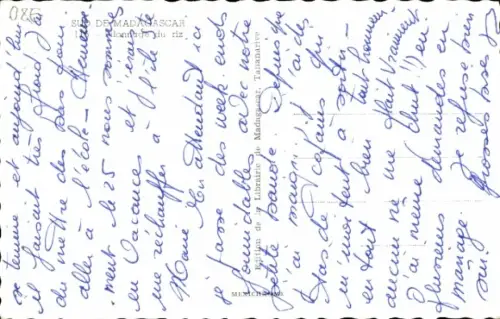 085
SUD DE MADAGASCAR
du riz
Edition de la Librairie de Madagascar, Tananarive
MEXICHROME
se termine et aujourd'hui
il faisait très froid
du mettre des bas pour
aller à l'école - Heureuse
ment le 25 nous sommes
en vacances et j'irai
me réchauffer à l'île
Marie. En attendant
je passe des week ends
formidables avec notre
petite bande. Depuis que
j'ai maigri j'ai
tas de qui
en tout bien tout honneur
aucun ne me plait vraiment
J'ai même eu
plusieurs demandes en
mariage. Je refuse bien
sûr. Grosses bises